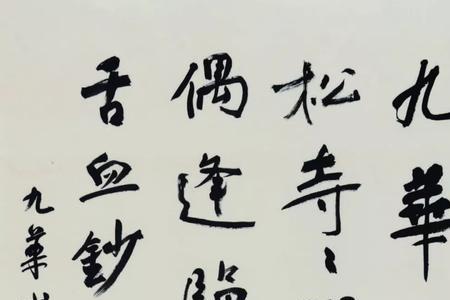 九華
松寺〻
偶逢
舌血鈔
九華